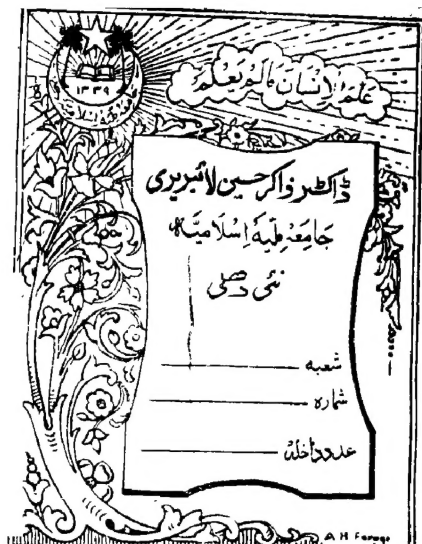 علم الإنسان مالم يعلم
۱۳۳۹
ڈاکٹر ذاکر حسین لائبریری
جامعہ ملیہ اسلامیہ
نئی دہلی
شعبہ
شمارہ
عدد داخلہ
A H Faruqi